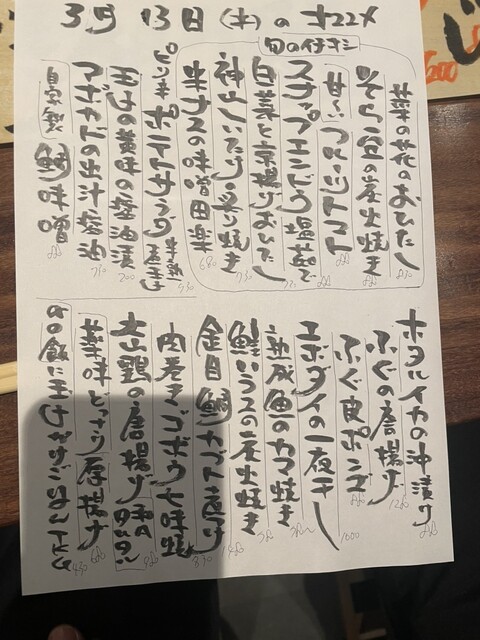 3月13日(木)のオススメ
旬のイチオシ
菜の花のおひたし
そら豆の炭火焼き
甘〜いフルーツトマト
スナップエンドウ塩茹で
白菜と京揚げおひたし
神山しいたけの炙り焼き
米ナスの味噌田楽 680
ピリ辛ポテトサラダ 半熟玉子
玉子の黄味の醤油漬 200
アボカドの出汁醤油
自家製 鯖味噌
ホタルイカの沖漬け
ふぐの唐揚げ
ふぐ皮ポンズ
エボダイの一夜干し 1000
熟成魚のカマ焼き
鮭いうスの炭火焼き
金目鯛カブト煮付
肉巻きゴボウ七味焼
大山鶏の唐揚げ
薬味どっさり厚揚げ
〆の飯に玉子かけごはんTKG
200